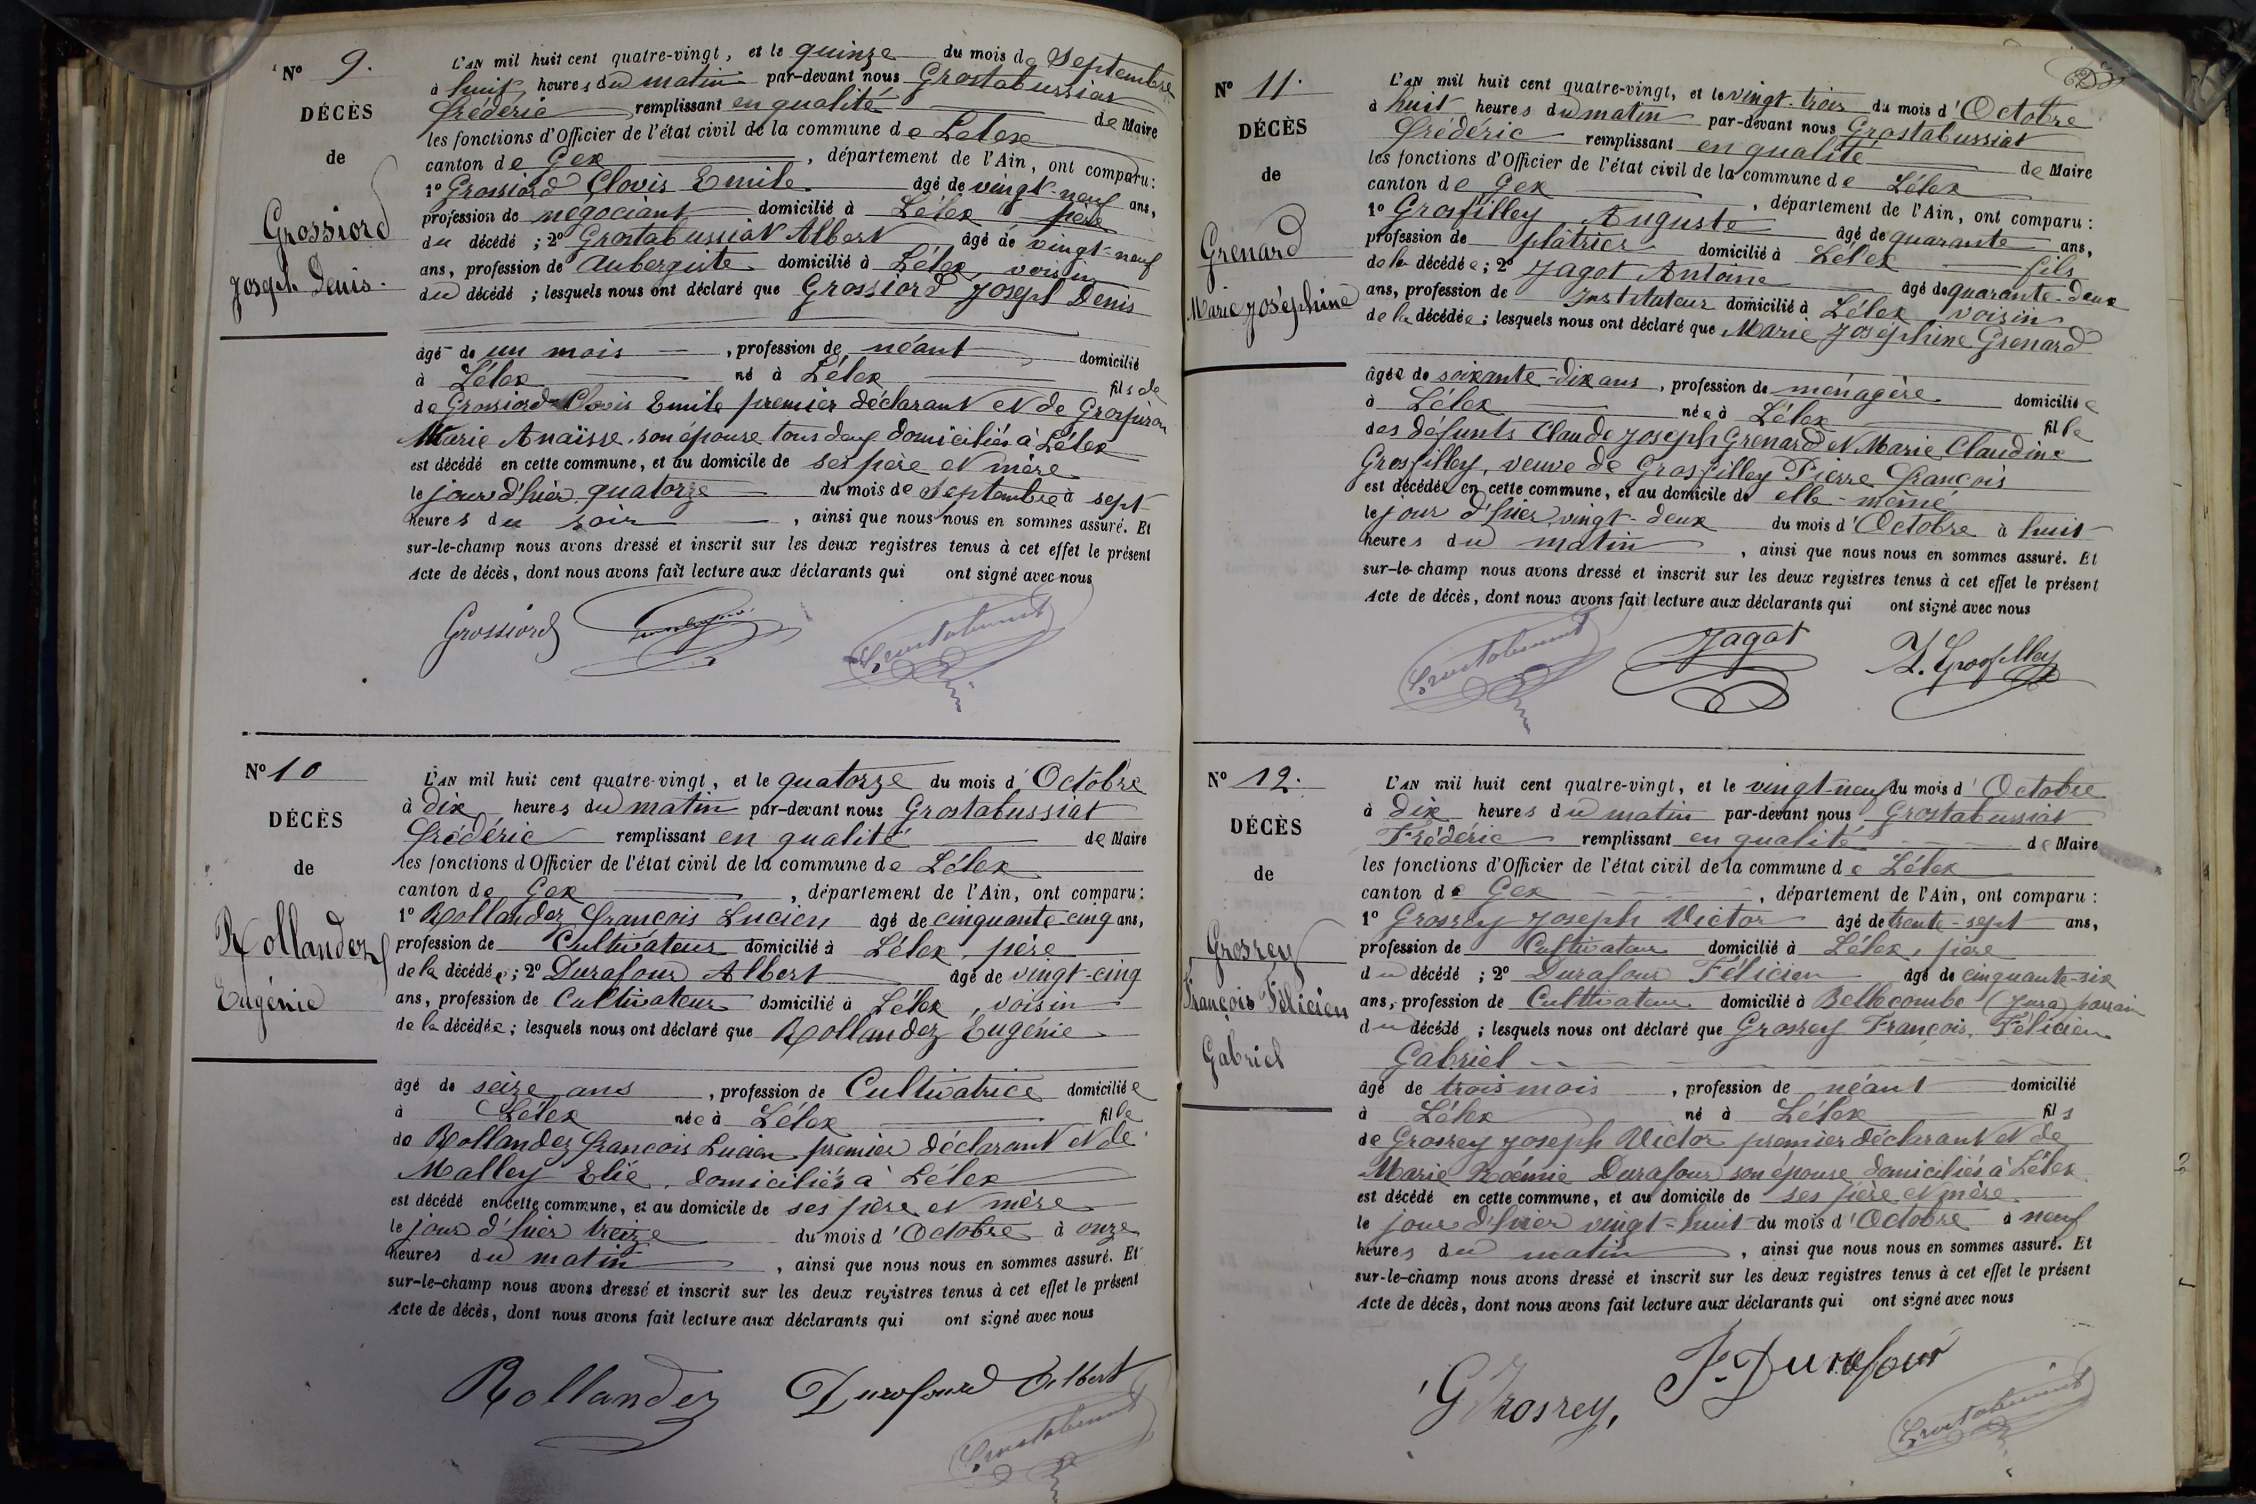 N° 9.
DÉCÈS
de
Grossiord
Joseph Denis.
L'AN mil huit cent quatre-vingt, et le quinze du mois de Septembre
à huit heures du matin par-devant nous Grostabussiat
Frédéric remplissant en qualité de Maire
les fonctions d'Officier de l'état civil de la commune de Lélex
canton de Gex, département de l'Ain, ont comparu:
1° Grossiord Clovis Emile âgé de vingt-neuf ans,
profession de négociant domicilié à Lélex père
du décédé ; 2° Grostabussiat Albert âgé de vingt-neuf
ans, profession de Aubergiste domicilié à Lélex, voisin
du décédé ; lesquels nous ont déclaré que Grossiord Joseph Denis
âgé de un mois, profession de néant domicilié
à Lélex né à Lélex fils de
de Grossiord Clovis Emile premier déclarant et de Grospiron
Marie Anaïsse son épouse tous deux domiciliés à Lélex
est décédé en cette commune, et au domicile de ses père et mère
le jour d'hier quatorze du mois de Septembre à sept
heures du soir, ainsi que nous nous en sommes assuré. Et
sur-le-champ nous avons dressé et inscrit sur les deux registres tenus à cet effet le présent
Acte de décès, dont nous avons fait lecture aux déclarants qui ont signé avec nous
Grossiord
N° 10
DÉCÈS
de
Rollandez
Eugénie
L'AN mil huit cent quatre-vingt, et le quatorze du mois d'Octobre
à dix heures du matin par-devant nous Grostabussiat
Frédéric remplissant en qualité de Maire
les fonctions d'Officier de l'état civil de la commune de Lélex
canton de Gex, département de l'Ain, ont comparu:
1° Rollandez François Lucien âgé de cinquante-cinq ans,
profession de Cultivateur domicilié à Lélex, père
de la décédée; 2° Durafour Albert âgé de vingt-cinq
ans, profession de Cultivateur domicilié à Lélex, voisin
de la décédée; lesquels nous ont déclaré que Rollandez Eugénie
âgé de seize ans, profession de Cultivatrice domiciliée
à Lélex née à Lélex fille
de Rollandez François Lucien premier déclarant et de
Malley Elié, domiciliés à Lélex
est décédé en cette commune, et au domicile de ses père et mère
le jour d'hier treize du mois d'Octobre à onze
heures du matin, ainsi que nous nous en sommes assuré. Et
sur-le-champ nous avons dressé et inscrit sur les deux registres tenus à cet effet le présent
Acte de décès, dont nous avons fait lecture aux déclarants qui ont signé avec nous
Rollandez Durafourd Albert
N° 11.
DÉCÈS
de
Grenard
Marie Joséphine
L'AN mil huit cent quatre-vingt, et le vingt-trois du mois d'Octobre
à huit heures du matin par-devant nous Grostabussiat
Frédéric remplissant en qualité de Maire
les fonctions d'Officier de l'état civil de la commune de Lélex
canton de Gex, département de l'Ain, ont comparu:
1° Grosfilley Auguste âgé de quarante ans,
profession de plâtrier domicilié à Lélex fils
de la décédée; 2° Jagot Antoine âgé de quarante-deux
ans, profession de Instituteur domicilié à Lélex voisin
de la décédée; lesquels nous ont déclaré que Marie Joséphine Grenard
âgée de soixante-dix ans, profession de ménagère domiciliée
à Lélex née à Lélex fille
des défunts Claude Joseph Grenard et Marie Claudine
Grosfilley, veuve de Grosfilley Pierre François
est décédée en cette commune, et au domicile de elle-même
le jour d'hier vingt-deux du mois d'Octobre à huit
heures du matin, ainsi que nous nous en sommes assuré. Et
sur-le-champ nous avons dressé et inscrit sur les deux registres tenus à cet effet le présent
Acte de décès, dont nous avons fait lecture aux déclarants qui ont signé avec nous
Jagot
N° 12.
DÉCÈS
de
Grosrey
François Félicien
Gabriel
L'AN mil huit cent quatre-vingt, et le vingt-neuf du mois d'Octobre
à dix heures du matin par-devant nous Grostabussiat
Frédéric remplissant en qualité de Maire
les fonctions d'Officier de l'état civil de la commune de Lélex
canton de Gex, département de l'Ain, ont comparu:
1° Grosrey Joseph Victor âgé de trente-sept ans,
profession de Cultivateur domicilié à Lélex, père
du décédé ; 2° Durafour Félicien âgé de cinquante-six
ans, profession de Cultivateur domicilié à Bellecombe (Jura) parrain
du décédé ; lesquels nous ont déclaré que Grosrey François Félicien
Gabriel
âgé de trois mois, profession de néant domicilié
à Lélex né à Lélex fils
de Grosrey Joseph Victor premier déclarant et de
Marie Noémie Durafour son épouse domiciliés à Lélex
est décédé en cette commune, et au domicile de ses père et mère
le jour d'hier vingt-huit du mois d'Octobre à neuf
heures du matin, ainsi que nous nous en sommes assuré. Et
sur-le-champ nous avons dressé et inscrit sur les deux registres tenus à cet effet le présent
Acte de décès, dont nous avons fait lecture aux déclarants qui ont signé avec nous
Grosrey, F. Durafour